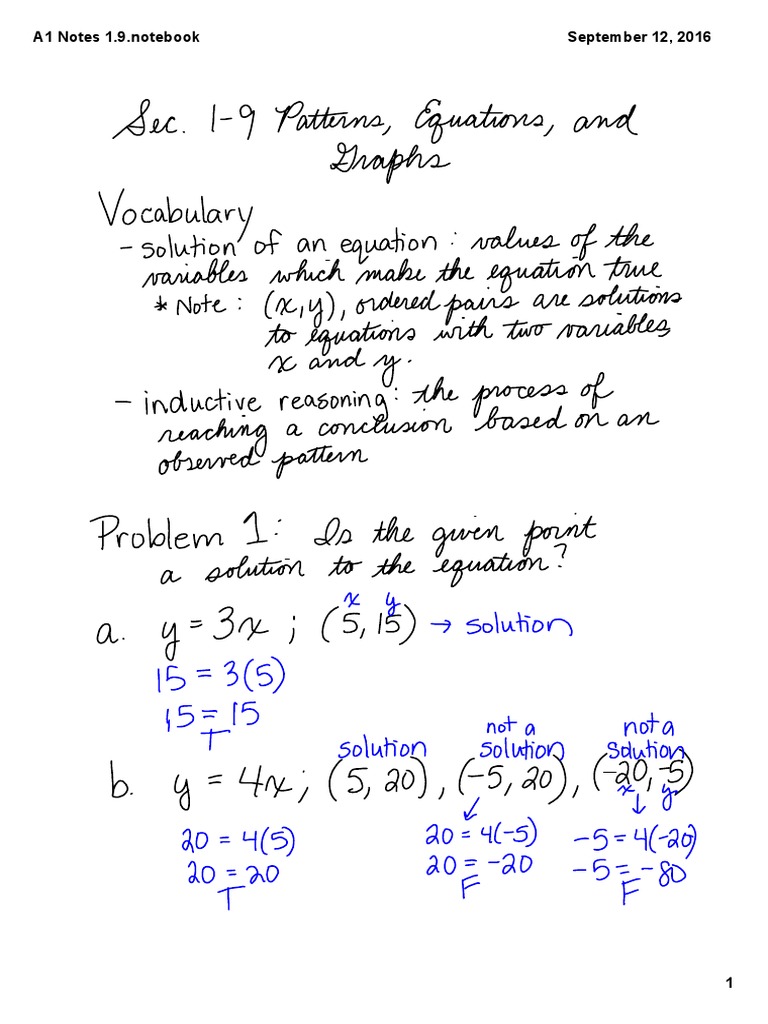 A1 Notes 1.9.notebook September 12, 2016
Sec. 1-9 Patterns, Equations, and
Graphs
Vocabulary
- solution of an equation: values of the
variables which make the equation true
* Note: (x,y), ordered pairs are solutions
to equations with two variables,
x and y.
- inductive reasoning: the process of
reaching a conclusion based on an
observed pattern
Problem 1: Is the given point
a solution to the equation?
x y
a. y = 3x ; (5, 15) → solution
15 = 3(5)
15 = 15
T
not a not a
solution solution solution
b. y = 4x; (5, 20), (-5, 20), (-20, -5)
x y
20 = 4(5) 20 = 4(-5) -5 = 4(-20)
20 = 20 20 = -20 -5 = -80
T F F
1